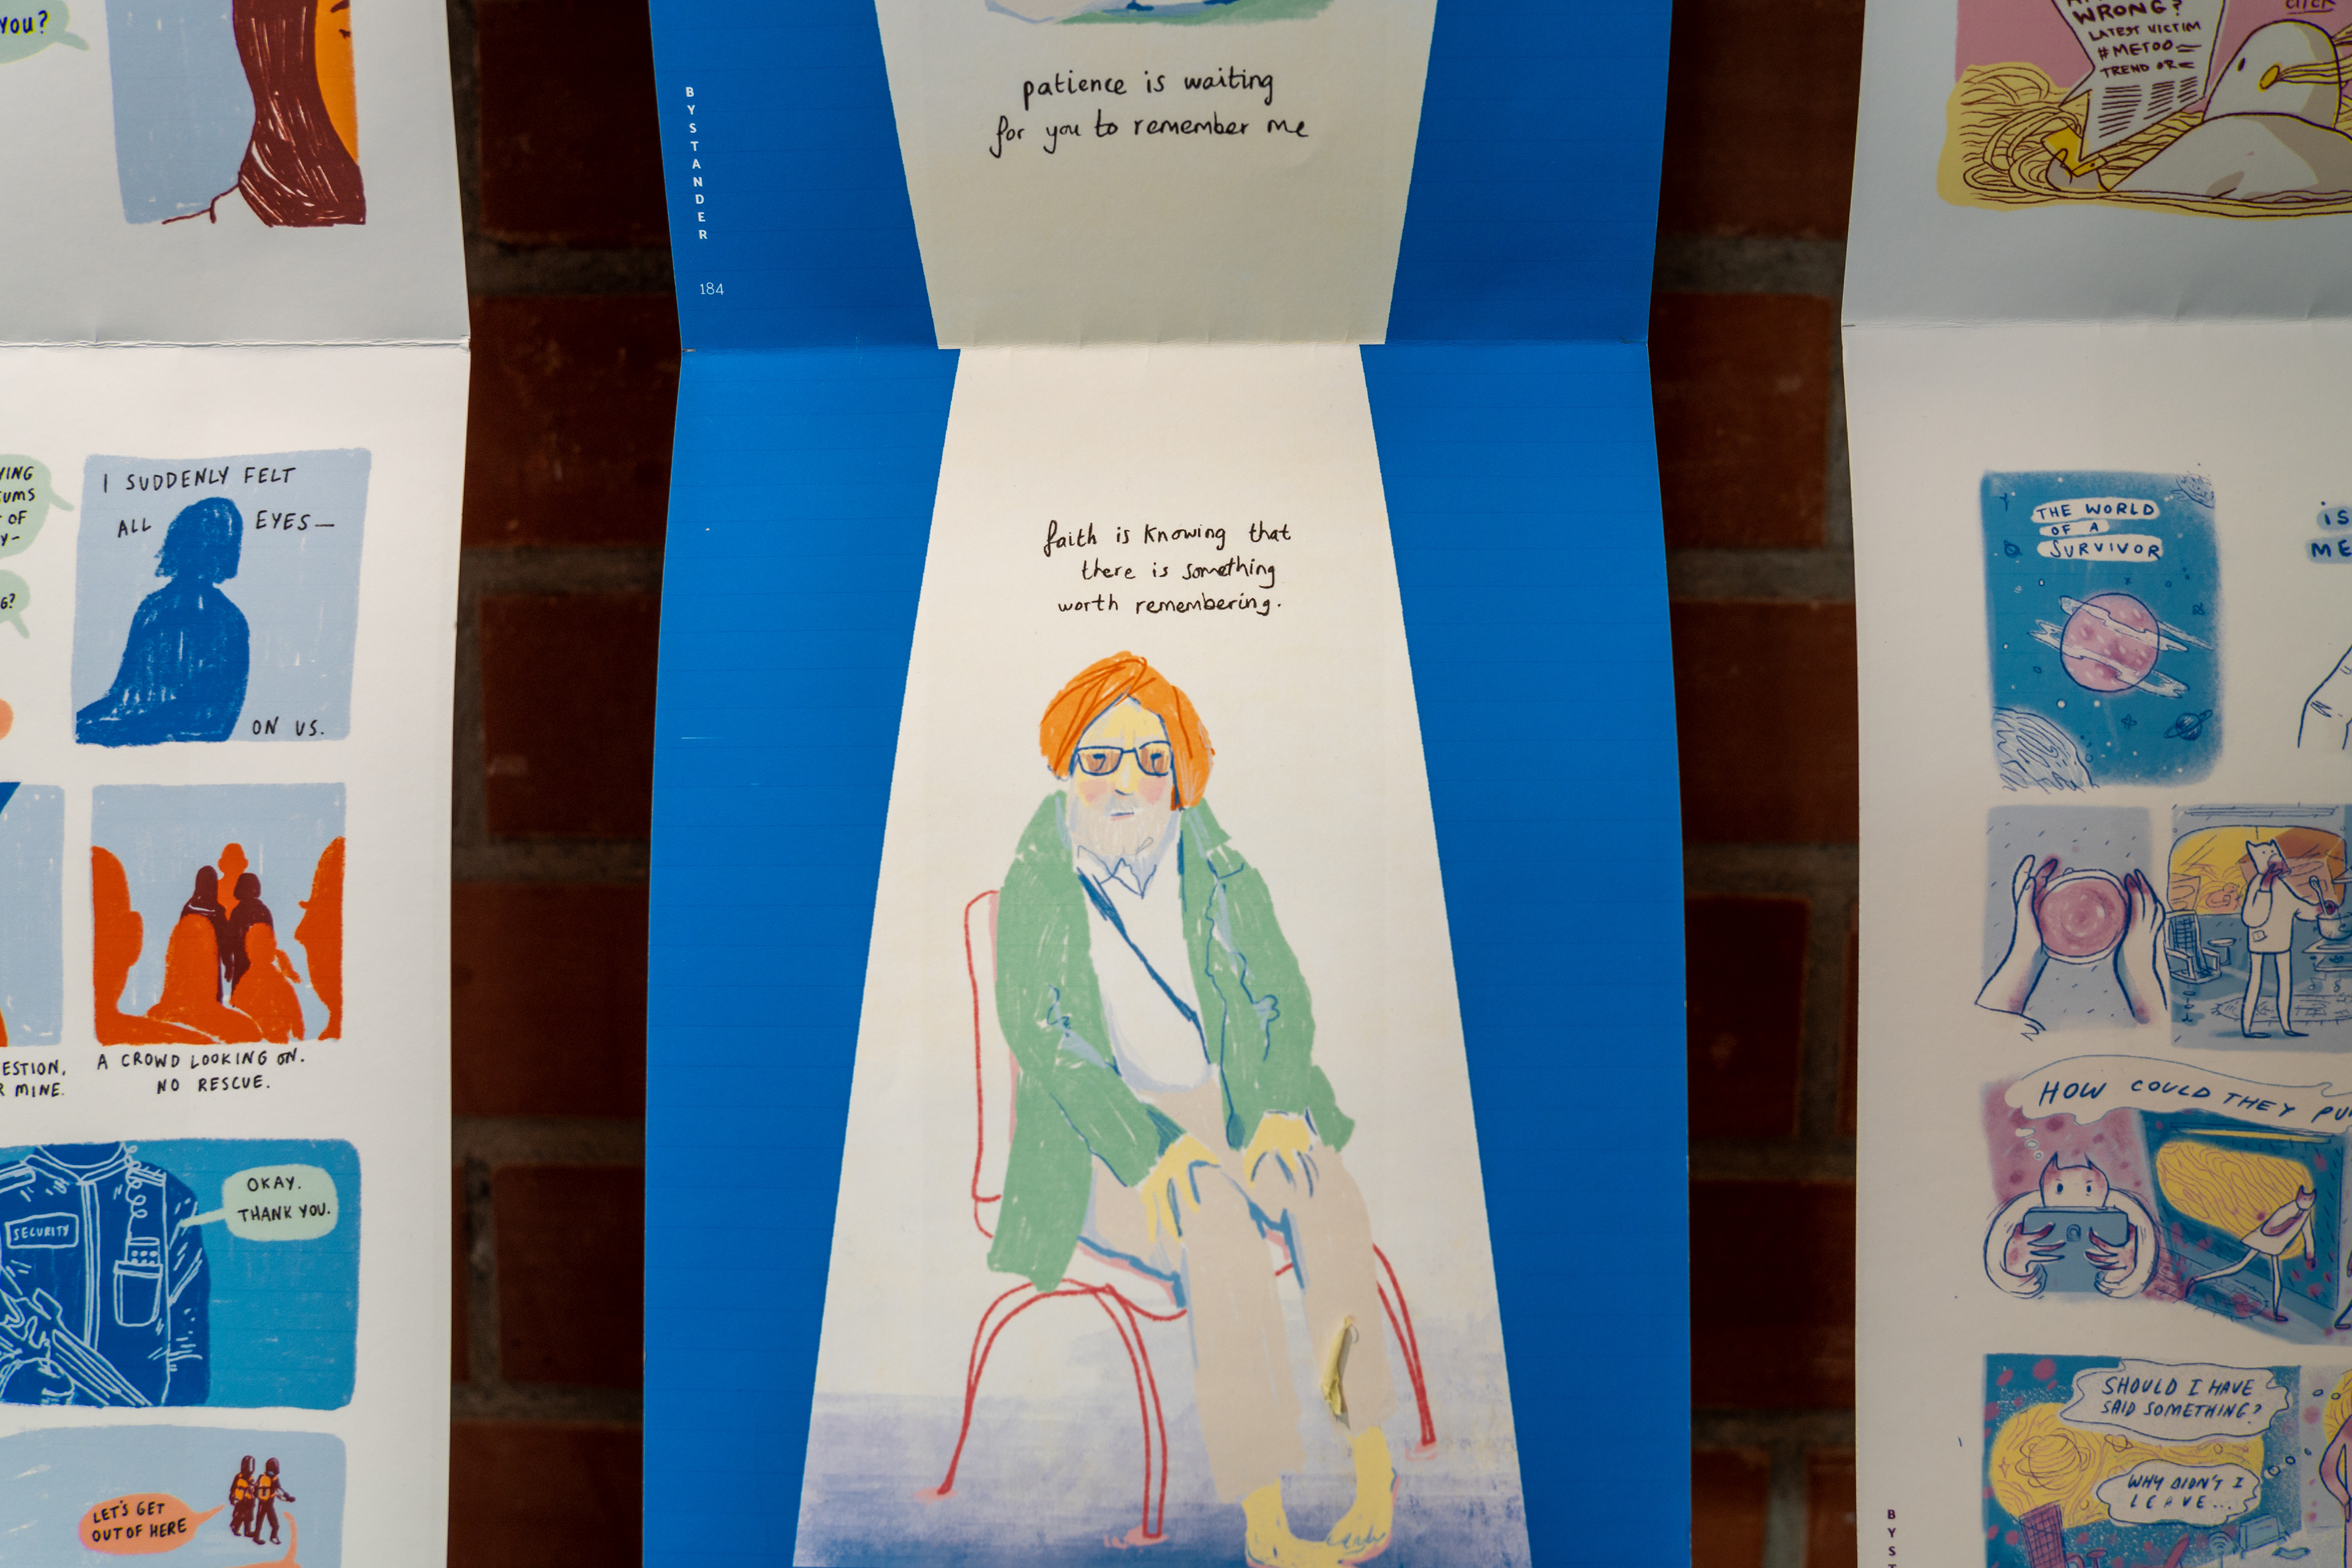 YOU?
YING
UMS
OF
Y-
G?
I SUDDENLY FELT
ALL EYES—
ON US.
ESTION,
R MINE.
A CROWD LOOKING ON.
NO RESCUE.
SECURITY
OKAY.
THANK YOU.
LET'S GET
OUT OF HERE
BYSTANDER
184
patience is waiting
for you to remember me
faith is knowing that
there is something
worth remembering.
WRONG?
LATEST VICTIM
#METOO
TREND OR
CLICK
THE WORLD
OF A
SURVIVOR
IS
ME
HOW COULD THEY PU
SHOULD I HAVE
SAID SOMETHING?
WHY DIDN'T I
LEAVE...
BYST